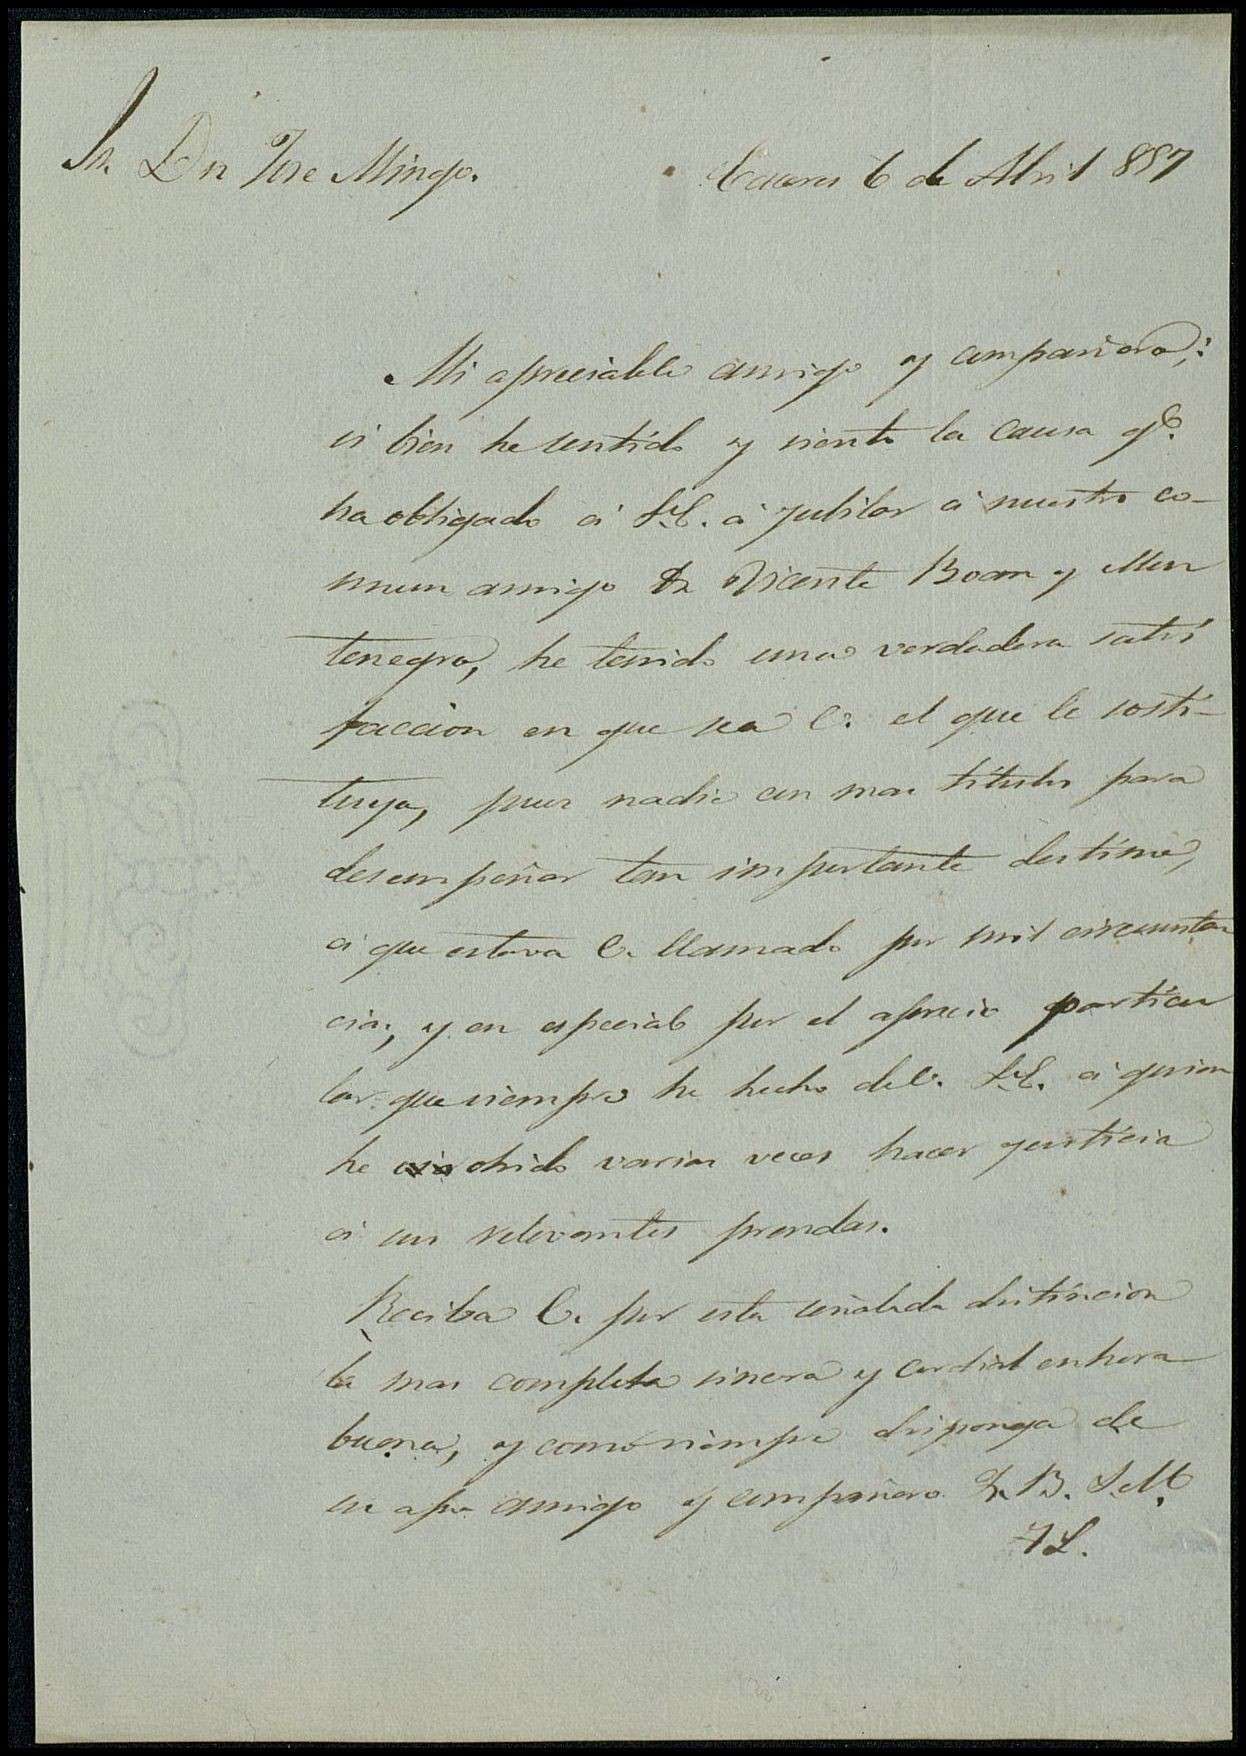 Sr. Dn Jose Mingo.
Caceres 6 de Abril 857
Mi apreciable amigo y compañero;:
si bien he sentido y siento la causa qe.
ha obligado á S.E. á jubilar á nuestro co-
mun amigo Dn Vicente Boan y Mon
tenegro, he tenido una verdadera satis
faccion en que sea V. el que le sosti-
tuya, pues nadie con mas titulos para
desempeñar tan importante destino,
á que estava V. llamado por mil circunstan
cias, y en especial por el aprecio particu
lar que siempre ha hecho de V. S.E. á quien
he ohido varias veces hacer justicia
á sus relevantes prendas.
Reciba V. por esta señalada distincion
la mas completa sincera y cordial enhora
buena, y como siempre disponga de
su apo. amigo y compañero Q.B.S.M.